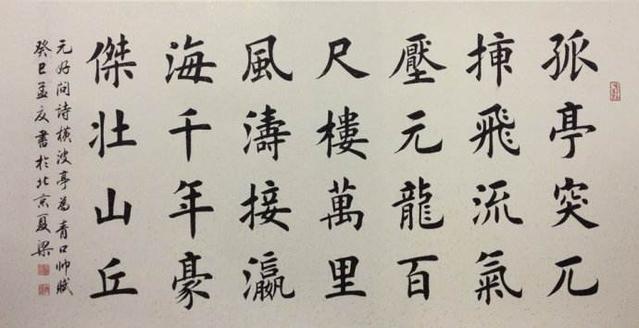 孤亭突兀
挿飛流氣
壓元龍百
尺樓萬里
風濤接瀛
海千年豪
傑壯山丘
元好問詩橫波亭為青口帥賦
癸巳孟夏書於北京夏梁